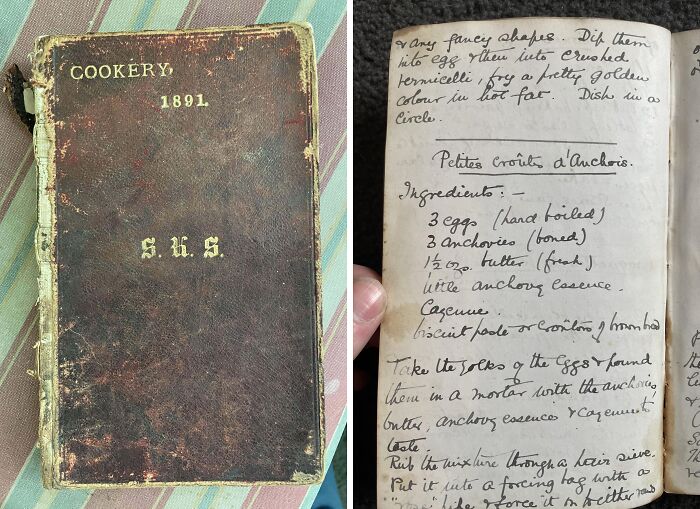 COOKERY,
1891.
S. K. S.
& any fancy shapes. Dip them
into egg & then into crushed
vermicelli, fry a pretty golden
colour in hot fat. Dish in a
circle.
Petites croûtes d'Anchois.
Ingredients: -
3 eggs (hard boiled)
3 anchovies (boned)
1½ ozs. butter (fresh)
little anchovy essence.
Cayenne.
biscuit paste or croûtons of brown bread
Take the yolks of the eggs & pound
them in a mortar with the anchovies
butter, anchovy essence & cayenne to
taste.
Rub the mixture through a hair sieve.
Put it into a forcing bag with a
"rose" pipe & force it on to either round